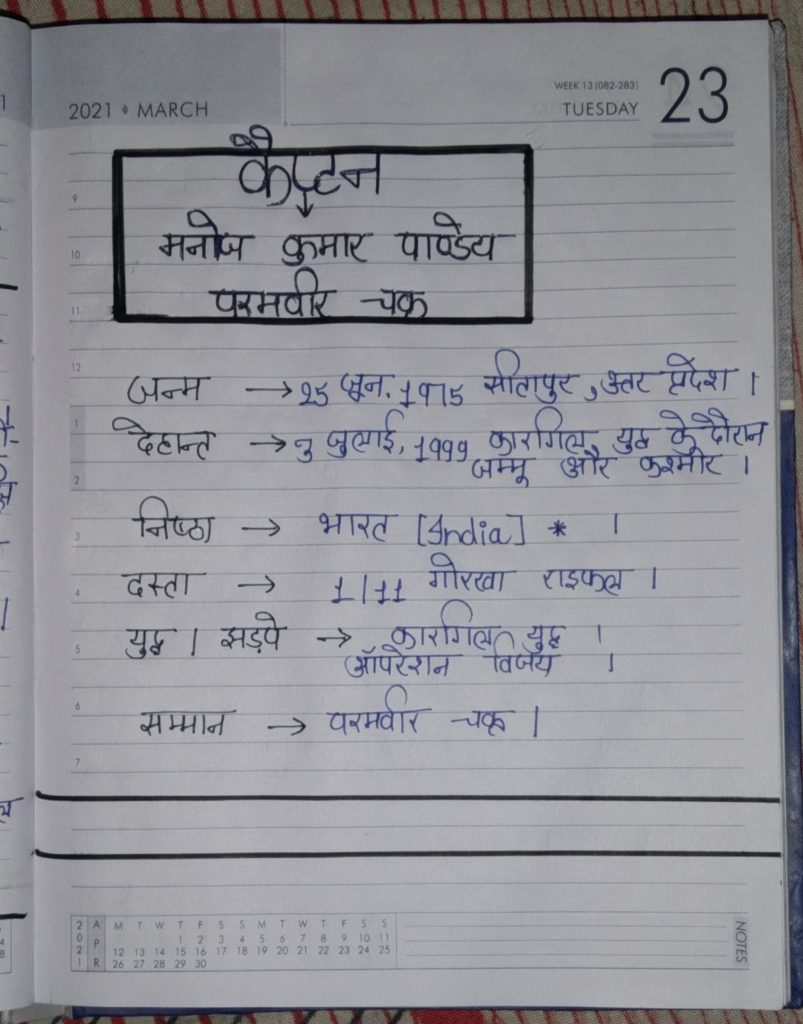 2021 ♦ MARCH
WEEK 13 (082-283)
TUESDAY 23
कैप्टन
↓
मनोज कुमार पाण्डेय
परमवीर चक्र
जन्म → 25 जून, 1975 सीतापुर, उत्तर प्रदेश ।
देहान्त → 3 जुलाई, 1999 कारगिल युद्ध के दौरान
जम्मू और कश्मीर ।
निष्ठा → भारत [India] * ।
दस्ता → 1/11 गोरखा राइफल ।
युद्ध / झड़पे → कारगिल युद्ध ।
ऑपरेशन विजय ।
सम्मान → परमवीर चक्र ।
9
10
11
12
1
2
3
4
5
6
7
2021 APR
M T W T F S S M T W T F S S
1 2 3 4 5 6 7 8 9 10 11
12 13 14 15 16 17 18 19 20 21 22 23 24 25
26 27 28 29 30
NOTES